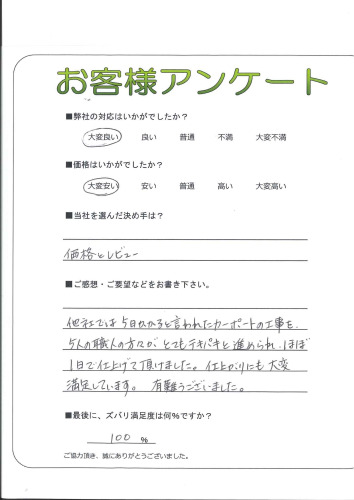 お客様アンケート
■弊社の対応はいかがでしたか?
大変良い 良い 普通 不満 大変不満
■価格はいかがでしたか?
大変安い 安い 普通 高い 大変高い
■当社を選んだ決め手は?
価格とレビュー
■ご感想・ご要望などをお書き下さい。
他社では5日かかると言われたカーポートの工事を、
5人の職人の方々がとてもテキパキと進められ、ほぼ
1日で仕上げて頂けました。仕上がりにも大変
満足しています。有難うございました。
■最後に、ズバリ満足度は何%ですか?
100 %
ご協力頂き、誠にありがとうございました。